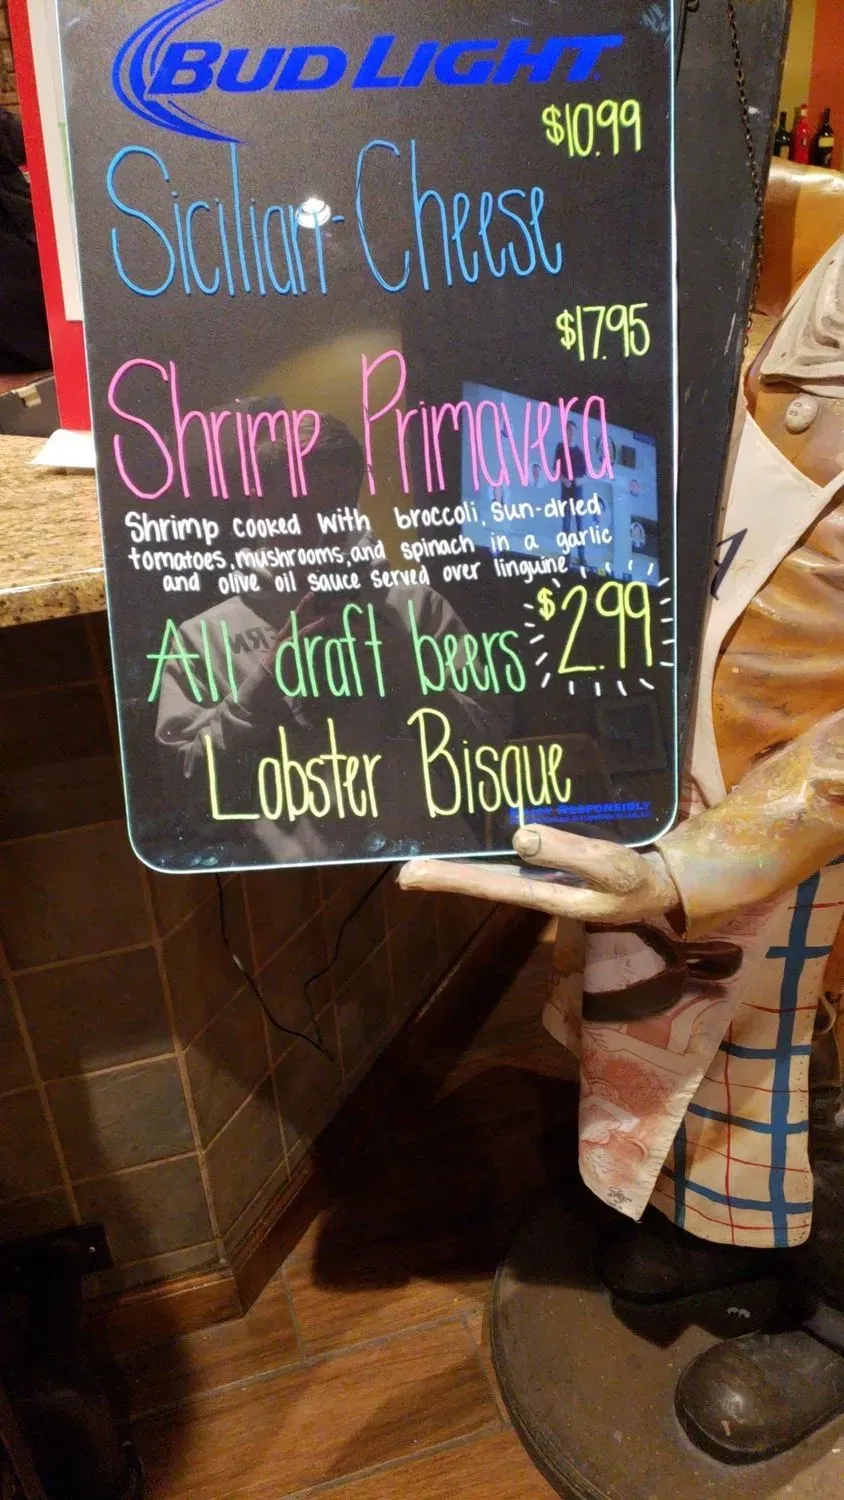 BUD LIGHT
$10.99
Sicilian-Cheese
$17.95
Shrimp Primavera
Shrimp cooked with broccoli, sun-dried
tomatoes, mushrooms, and spinach in a garlic
and olive oil sauce served over linguine
All draft beers $2.99
Lobster Bisque
RESPONSIBLY